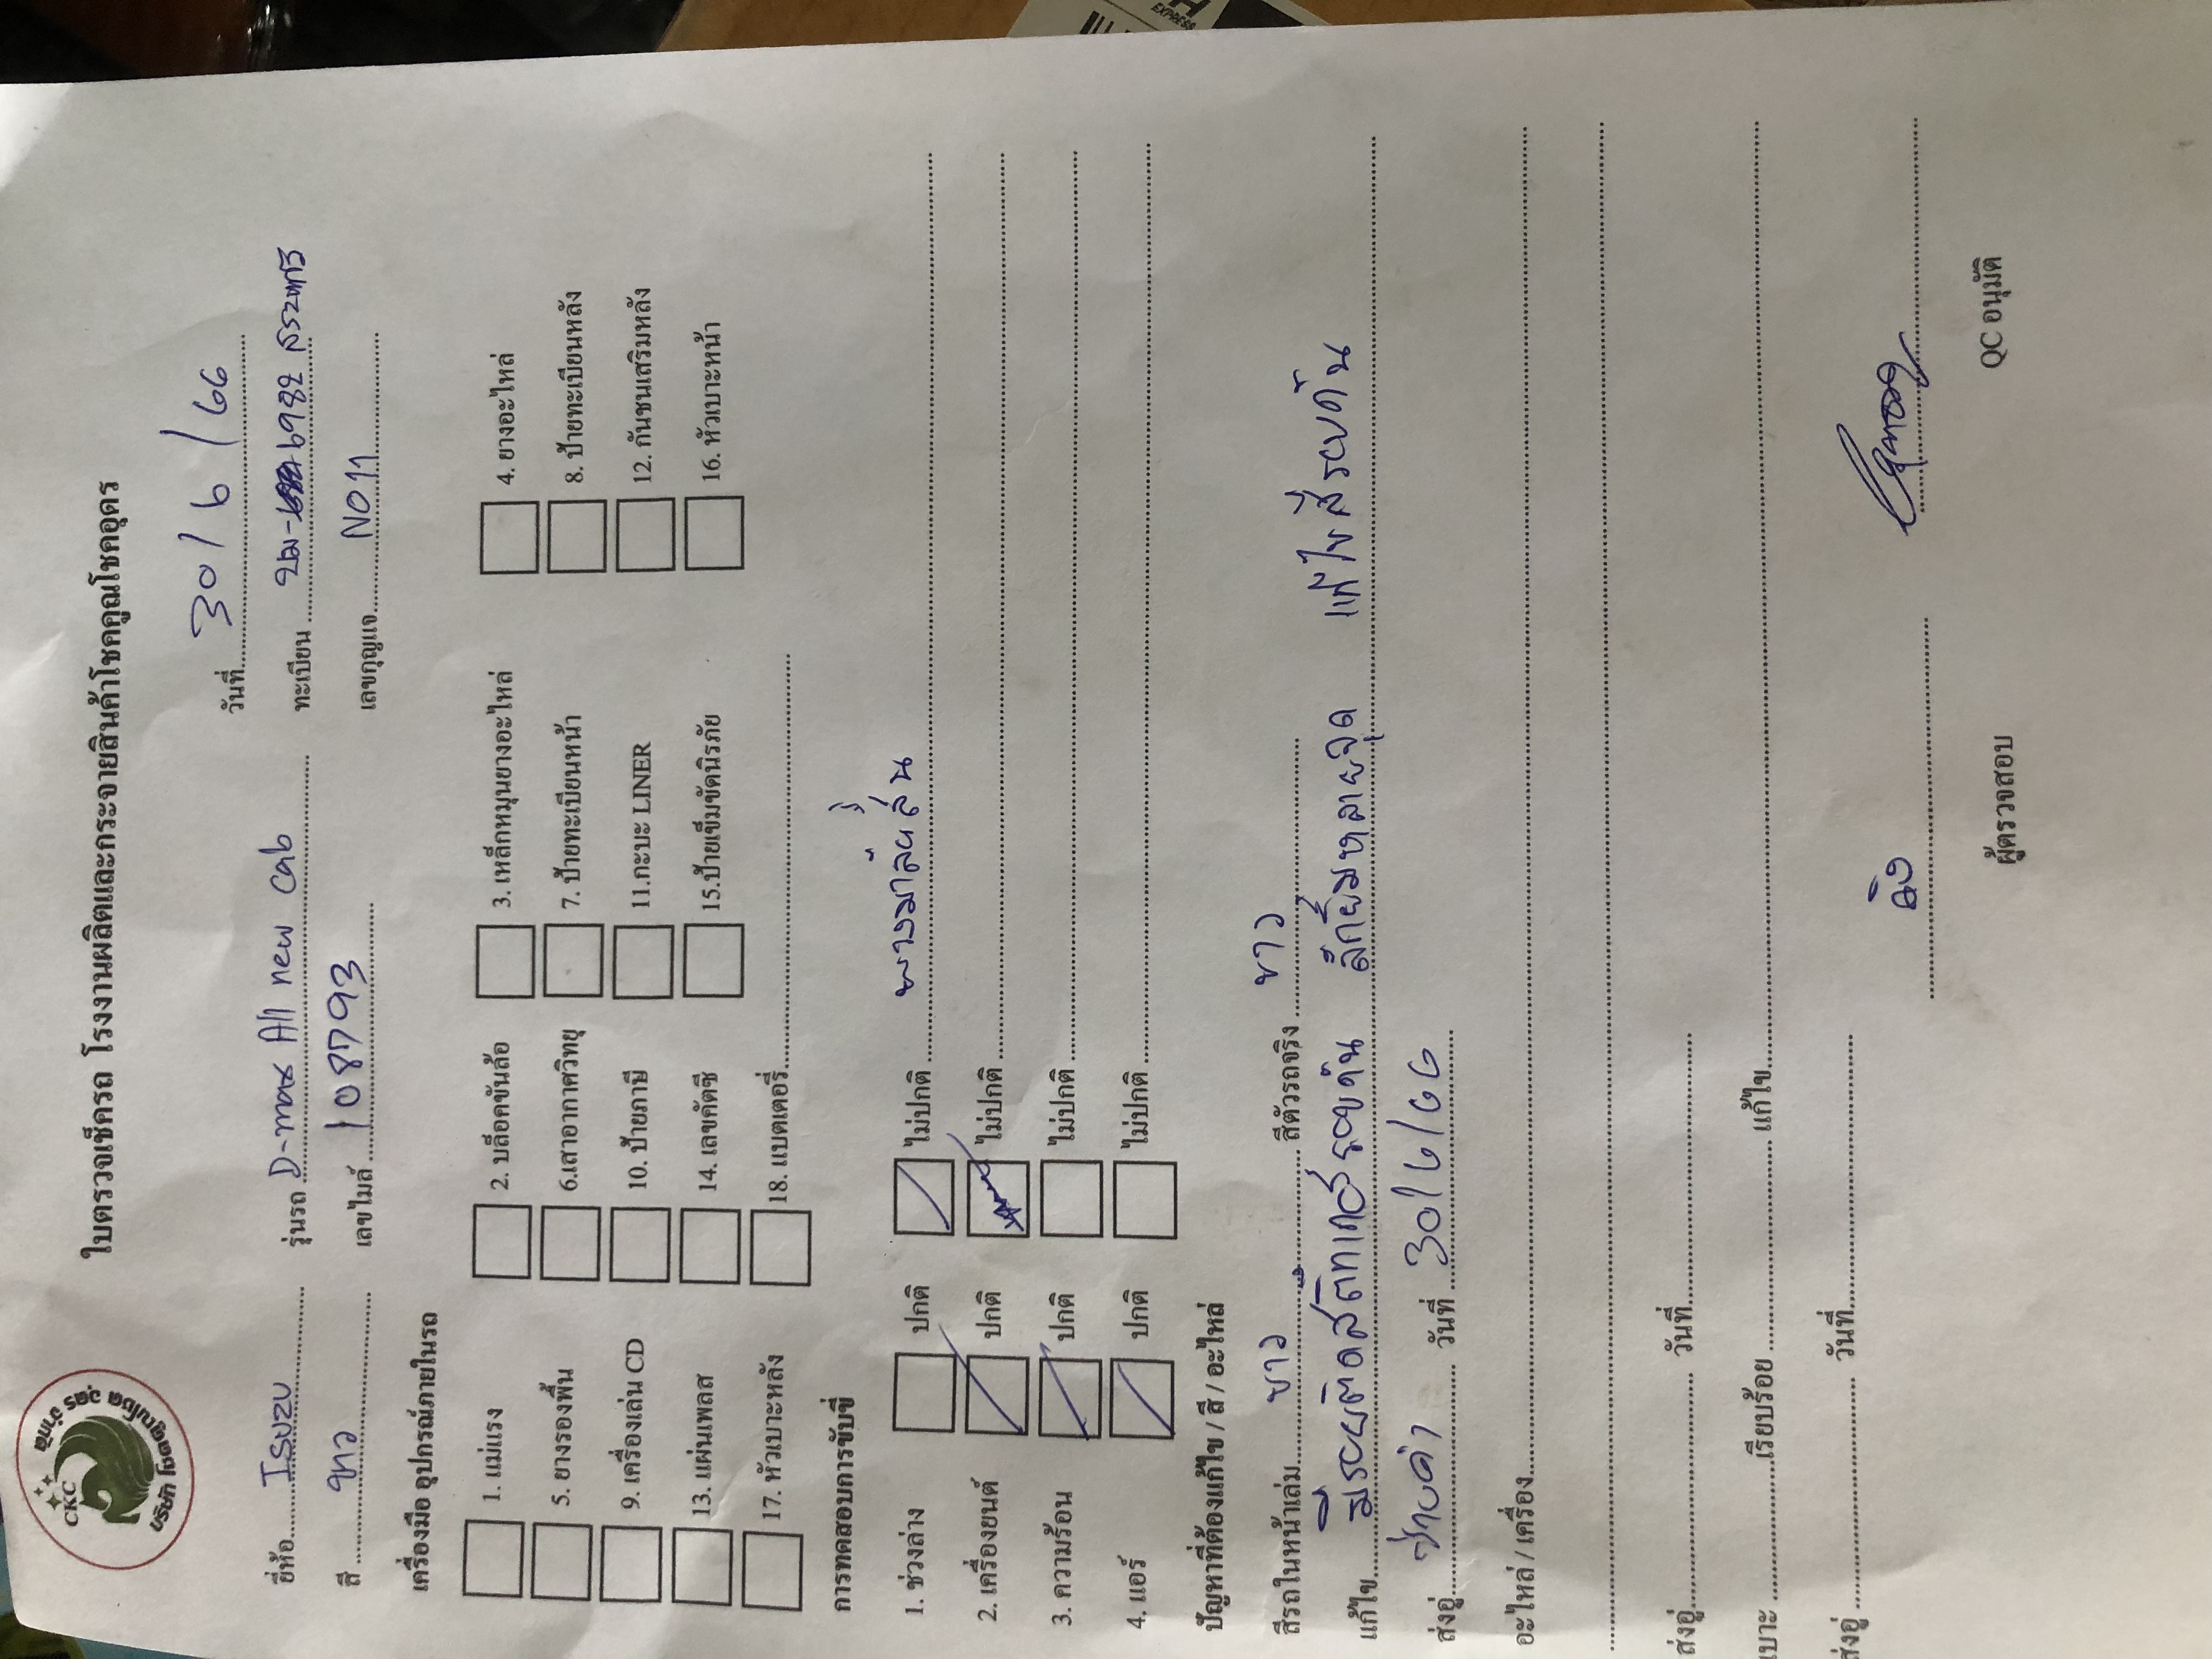 EXPRESS
CKC
บริษัท โชคคูณโชค อุดร จำกัด
ใบตรวจเช็ครถ โรงงานผลิตและกระจายสินค้าโชคคูณโชคอุดร
วันที่ 30/6/66
ยี่ห้อ ISUZU รุ่นรถ D-max All new cab ทะเบียน บม- 6982
สี ขาว เลขไมล์ 108793 เลขกุญแจ NO11
เครื่องมือ อุปกรณ์ภายในรถ
1. แม่แรง 2. บล็อคขันล้อ 3. เหล็กหมุนยางอะไหล่ 4. ยางอะไหล่
5. ยางรองพื้น 6.เสาอากาศวิทยุ 7. ป้ายทะเบียนหน้า 8. ป้ายทะเบียนหลัง
9. เครื่องเล่น CD 10. ป้ายภาษี 11.กะบะ LINER 12. กันชนเสริมหลัง
13. แผ่นเพลส 14. เลขคัตซี 15.ป้ายเข็มขัดนิรภัย 16. หัวเบาะหน้า
17. หัวเบาะหลัง 18. แบตเตอรี่
การทดสอบการขับขี่
1. ช่วงล่าง ปกติ ไม่ปกติ
2. เครื่องยนต์ ปกติ ไม่ปกติ
3. ความร้อน ปกติ ไม่ปกติ
4. แอร์ ปกติ ไม่ปกติ
ปัญหาที่ต้องแก้ไข / สี / อะไหล่
สีรถในหน้าเล่ม ขาว สีตัวรถจริง ขาว
แก้ไข มีรอยติดสติกเกอร์รอบคัน หลายจุด แก้ไขสีรอบคัน
ส่งอู่ ช่างดำ วันที่ 30/6/66
อะไหล่ / เครื่อง
ส่งอู่ วันที่
เบาะ เรียบร้อย แก้ไข
ส่งอู่ วันที่
ผู้ตรวจสอบ QC อนุมัติ